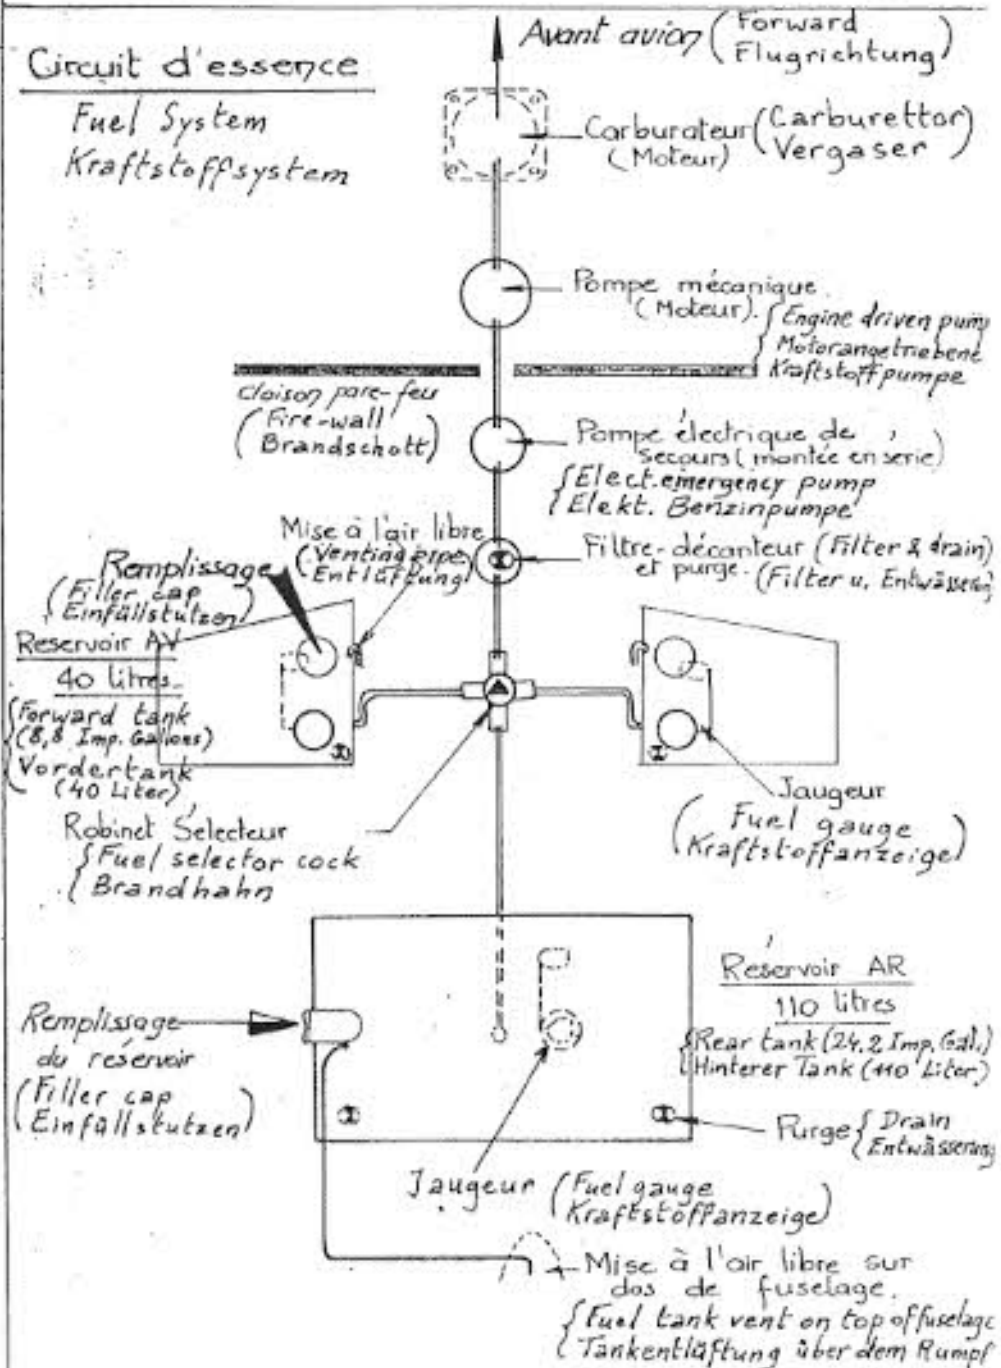 Circuit d'essence
Fuel System
Kraftstoffsystem
Avant avion (Forward
Flugrichtung)
Carburateur (Carburettor
(Moteur) Vergaser)
Pompe mécanique
(Moteur). {Engine driven pump
Motorangetriebene
Kraftstoffpumpe
cloison pare-feu
(Fire-wall
Brandschott)
Pompe électrique de
secours (montée en série)
{Elect. emergency pump
Elekt. Benzinpumpe
Mise à l'air libre
(Venting pipe
Entlüftung)
Filtre-décanteur (Filter & drain)
et purge. (Filter u. Entwässerung)
Remplissage
(Filler cap
Einfüllstutzen)
Reservoir AV
40 litres
{Forward tank
(8,8 Imp. Gallons)
{Vordertank
(40 Liter)
Robinet Sélecteur
{Fuel selector cock
Brandhahn
Jaugeur
(Fuel gauge
Kraftstoffanzeige)
Réservoir AR
110 litres
{Rear tank (24,2 Imp. Gal.)
Hinterer Tank (110 Liter)
Remplissage
du réservoir
(Filler cap
Einfüllstutzen)
Purge {Drain
Entwässerung
Jaugeur (Fuel gauge
Kraftstoffanzeige)
Mise à l'air libre sur
dos de fuselage.
{Fuel tank vent on top of fuselage
Tankentlüftung über dem Rumpf